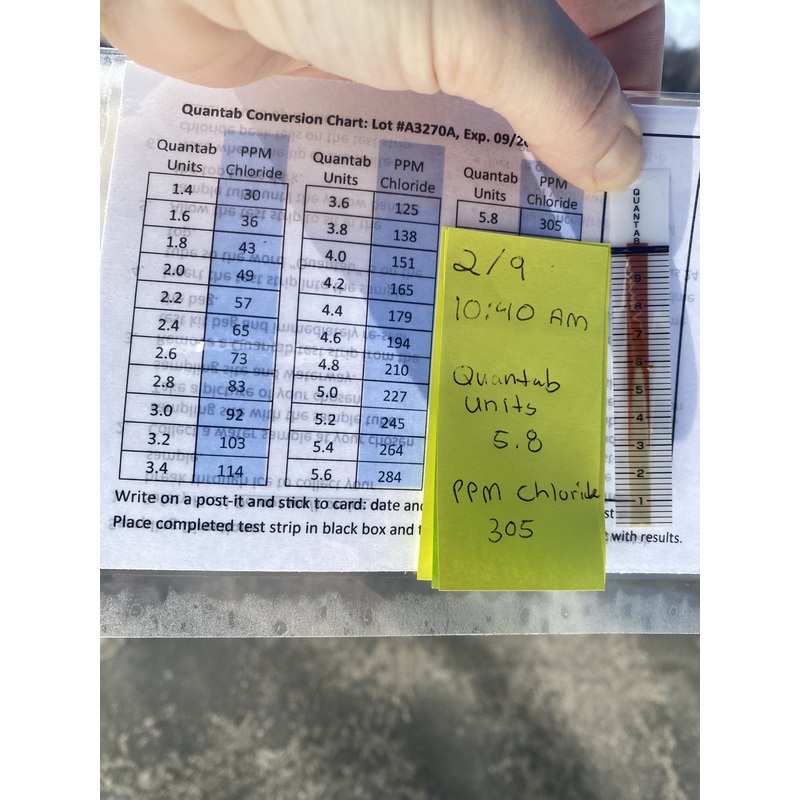 Quantab Conversion Chart: Lot #A3270A, Exp. 09/2
Quantab Units PPM Chloride
1.4 30
1.6 36
1.8 43
2.0 49
2.2 57
2.4 65
2.6 73
2.8 83
3.0 92
3.2 103
3.4 114
Quantab Units PPM Chloride
3.6 125
3.8 138
4.0 151
4.2 165
4.4 179
4.6 194
4.8 210
5.0 227
5.2 245
5.4 264
5.6 284
Quantab Units PPM Chloride
5.8 305
2/9
10:40 AM
Quantab
units
5.8
PPM Chloride
305
QUANTAB
9
8
7
6
5
4
3
2
1
Write on a post-it and stick to card: date
Place completed test strip in black box and
with results.